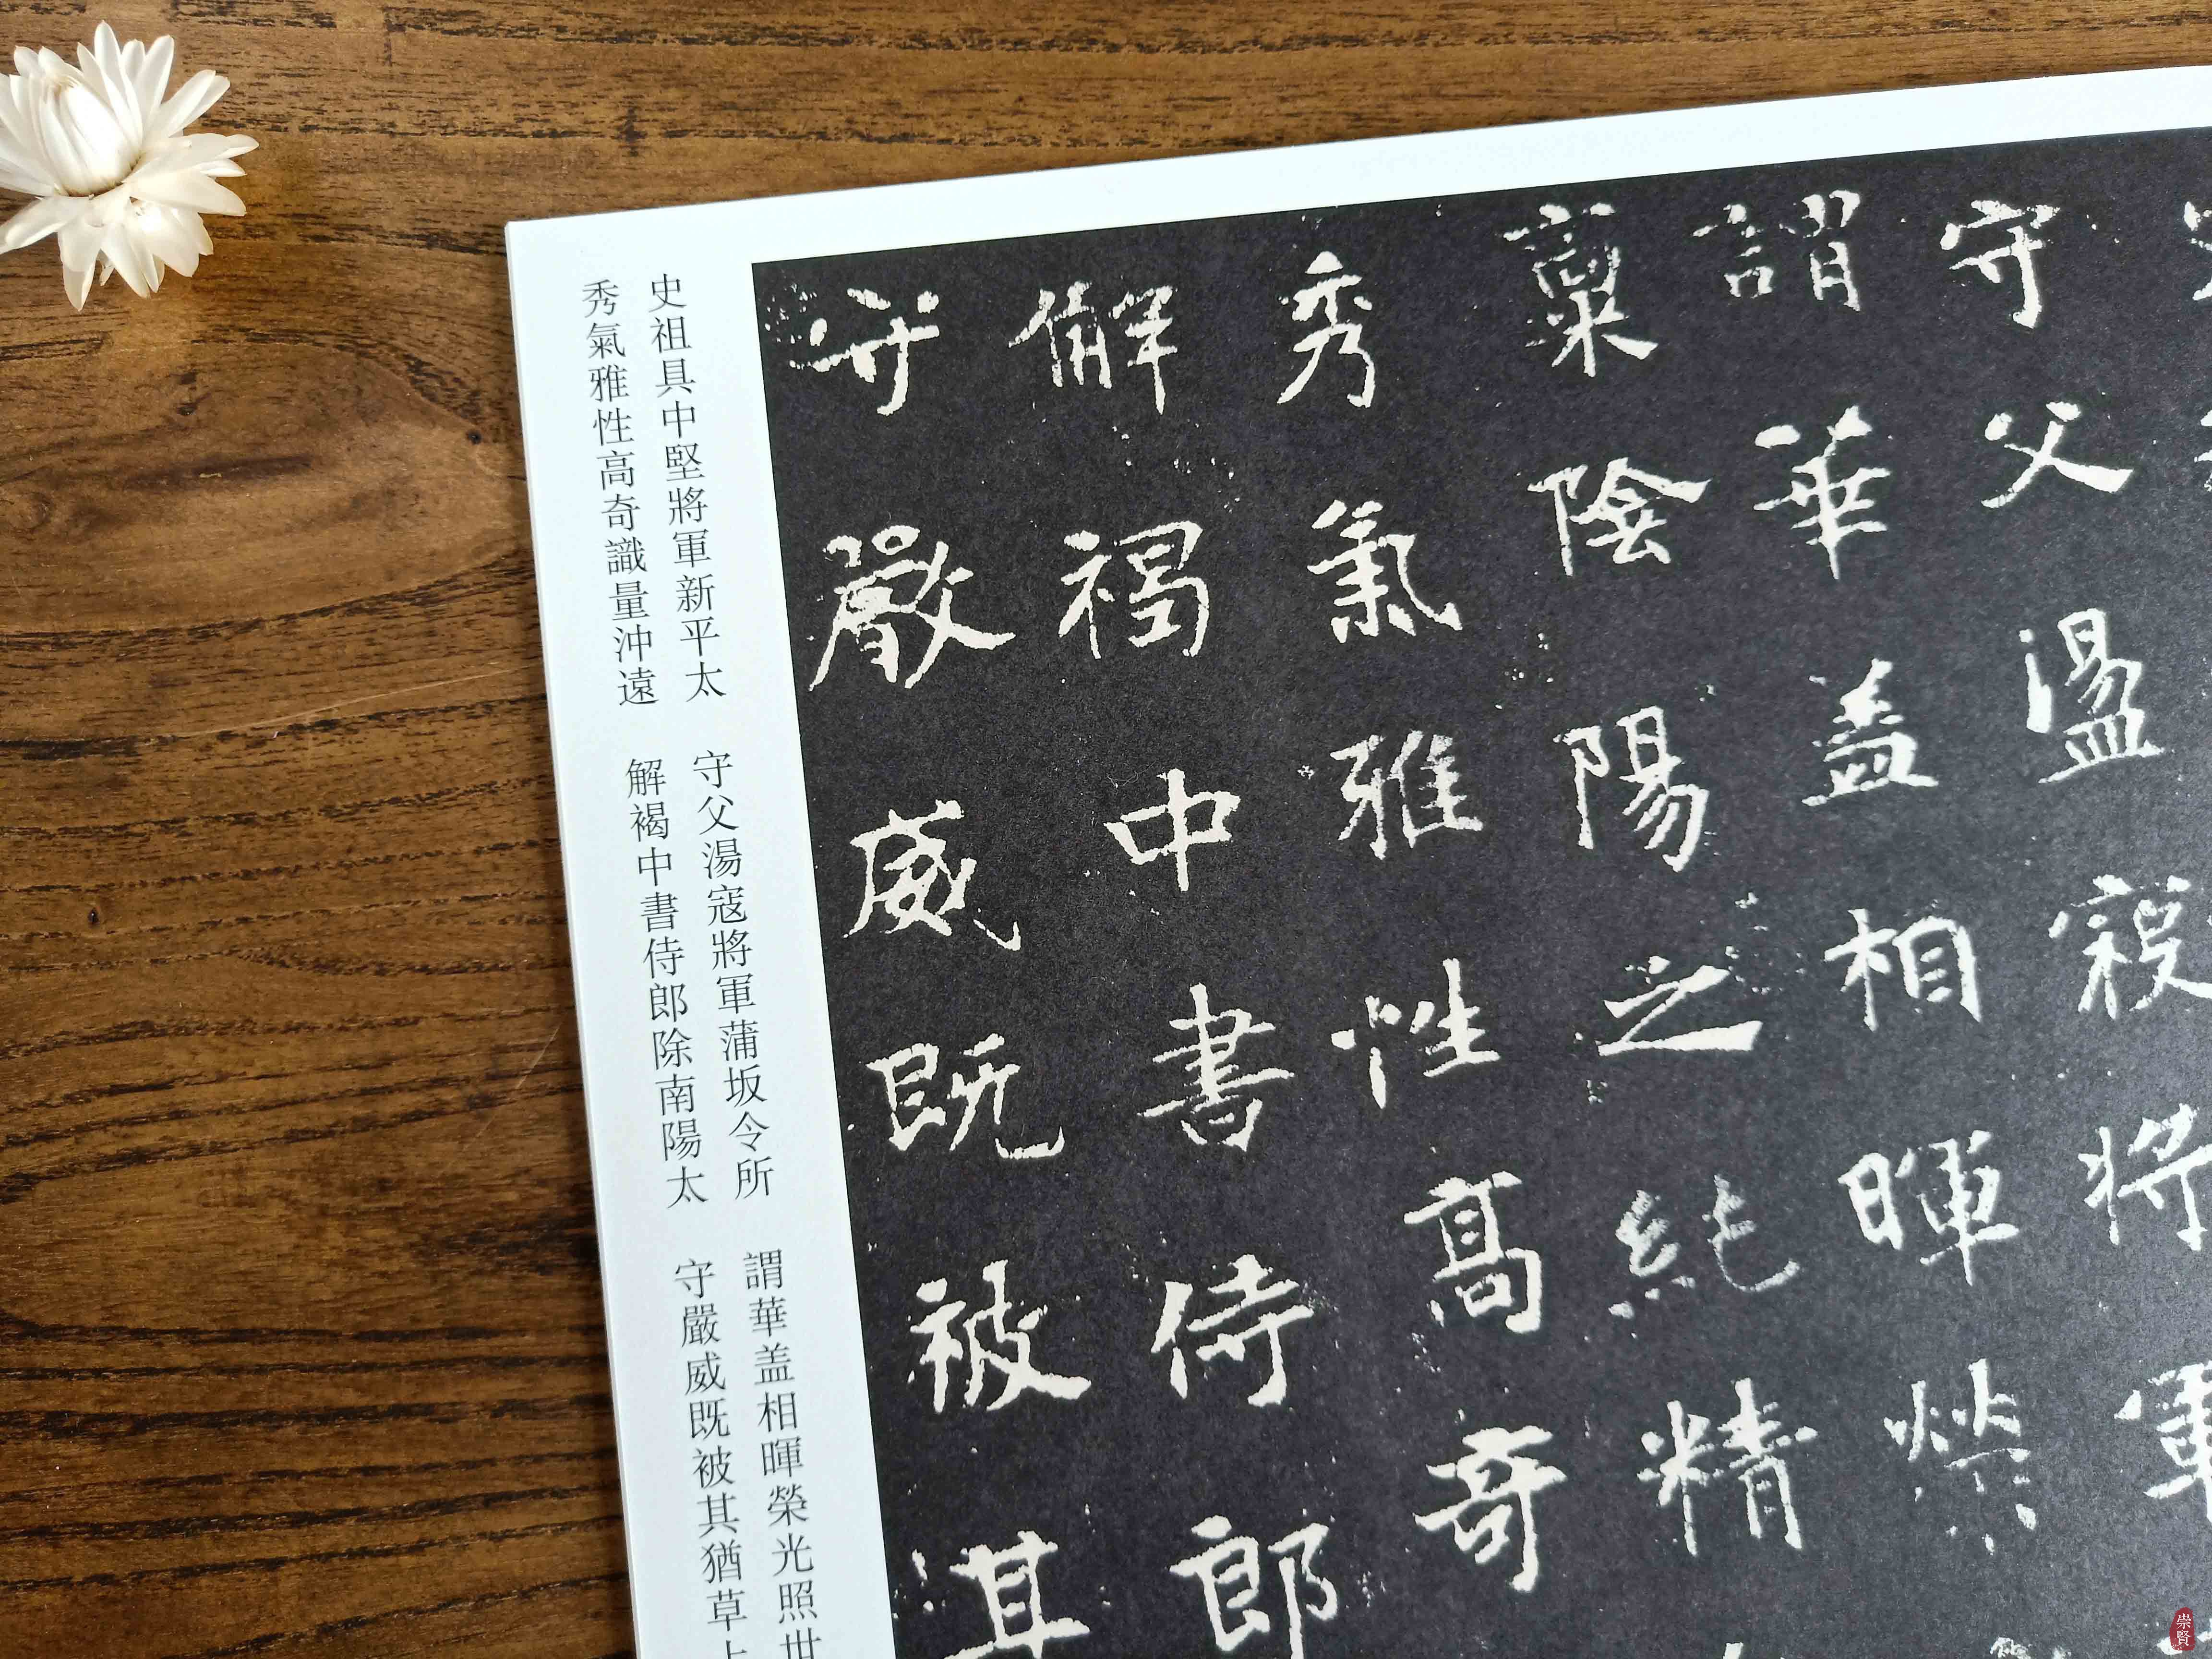 守父盪寇將軍
謂華盖相暉榮
稟陰陽之純精
秀氣雅性高奇
解褐中書侍郎
守嚴威既被其
史祖具中堅將軍新平太
守父湯寇將軍蒲坂令所
謂華盖相暉榮光照世
秀氣雅性高奇識量沖遠
解褐中書侍郎除南陽太
守嚴威既被其猶草上
崇賢